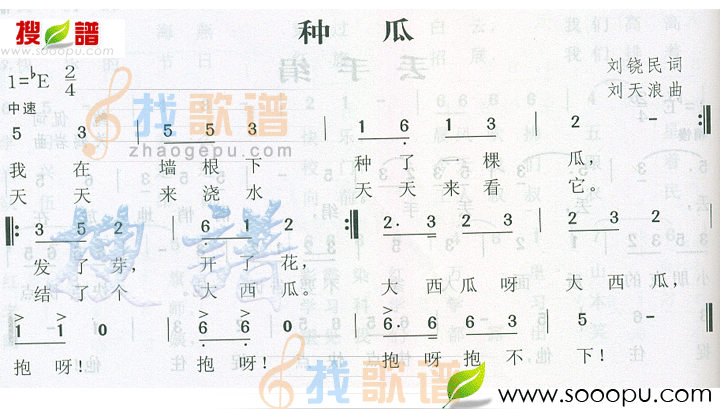 搜谱
种 瓜
1=♭E 2/4
刘饶民 词
中速
刘天浪 曲
找歌谱
zhaogepu.com
5 3 | 5 5 3 | 1 6 1 3 | 2 - :‖
我 在 墙 根 下 种 了 一 棵 瓜,
天 天 来 浇 水 天 天 来 看 它。
‖: 3 5 2 | 6 1 2 :‖ 2. 3 2 3 | 2 3 2 3 |
发 了 芽, 开 了 花,
结 了 个 大 西 瓜。 大 西 瓜 呀 大 西 瓜,
1 1 0 | 6 6 0 | 6 6 6 3 | 5 - ‖
抱 呀! 抱 呀! 抱 呀 抱 不 下!
搜谱
找歌谱
www.sooopu.com